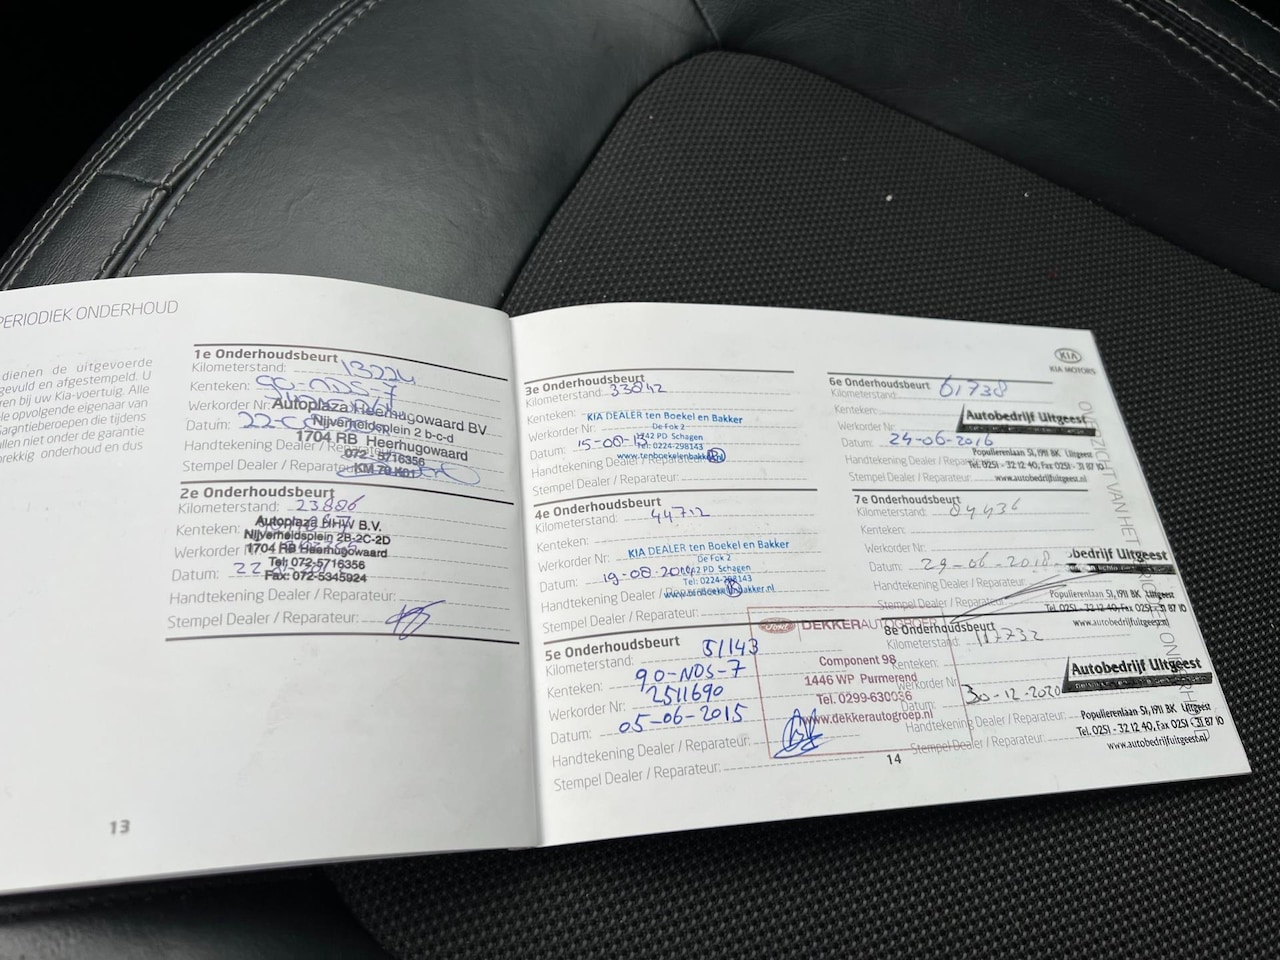 PERIODIEK ONDERHOUD
dienen de uitgevoerde
gevuld en afgestempeld. U
ren bij uw Kia-voertuig. Alle
le opvolgende eigenaar van
Garantieberoepen die tijdens
llen niet onder de garantie
brekkig onderhoud en dus
1e Onderhoudsbeurt
Kilometerstand: 13224
Kenteken: 90-NDS-7
Werkorder Nr:
Autoplaza Heerhugowaard BV
Nijverheidsplein 2 b-c-d
Datum: 22-
1704 RB Heerhugowaard
Handtekening Dealer / Reparateur:
072 - 5716356
Stempel Dealer / Reparateur:
2e Onderhoudsbeurt
Kilometerstand: 23886
Kenteken:
Autoplaza HHW B.V.
Nijverheidsplein 2B-2C-2D
Werkorder
1704 RB Heerhugowaard
Tel: 072-5716356
Datum: 22
Fax: 072-5345924
Handtekening Dealer / Reparateur:
Stempel Dealer / Reparateur:
13
3e Onderhoudsbeurt
Kilometerstand: 33842
Kenteken:
KIA DEALER ten Boekel en Bakker
De Fok 2
Werkorder Nr:
1742 PD Schagen
Datum: 15-08-
Tel: 0224-298143
www.tenboekelenbakker.nl
Handtekening Dealer / Reparateur:
Stempel Dealer / Reparateur:
4e Onderhoudsbeurt
Kilometerstand: 44712
Kenteken:
KIA DEALER ten Boekel en Bakker
De Fok 2
Werkorder Nr:
1742 PD Schagen
Datum: 19-08-20
Tel: 0224-298143
Handtekening Dealer / Reparateur:
Stempel Dealer / Reparateur:
5e Onderhoudsbeurt
Kilometerstand: 51143
Kenteken: 90-NDS-7
Werkorder Nr: 2511690
Datum: 05-06-2015
Handtekening Dealer / Reparateur:
Stempel Dealer / Reparateur:
DEKKERAUTOGROEP
Component 98
1446 WP Purmerend
Tel. 0299-630036
www.dekkerautogroep.nl
KIA
KIA MOTORS
6e Onderhoudsbeurt
Kilometerstand: 61738
Kenteken:
Autobedrijf Uitgeest
Werkorder Nr:
Datum: 24-06-2016
Populierenlaan 51, 1911 BK Uitgeest
Handtekening Dealer / Reparateur:
Tel. 0251 - 32 12 40, Fax 0251 - 31 87 10
Stempel Dealer / Reparateur:
www.autobedrijfuitgeest.nl
7e Onderhoudsbeurt
Kilometerstand: 84436
Kenteken:
Werkorder Nr:
bedrijf Uitgeest
Datum: 29-06-2018
Handtekening Dealer / Reparateur:
Populierenlaan 51, 1911 BK Uitgeest
Stempel Dealer / Reparateur:
Tel. 0251 - 32 12 40, Fax 0251 - 31 87 10
www.autobedrijfuitgeest.nl
8e Onderhoudsbeurt
Kilometerstand: 117732
Kenteken:
Autobedrijf Uitgeest
Werkorder Nr:
Datum: 30-12-2020
Populierenlaan 51, 1911 BK Uitgeest
Handtekening Dealer / Reparateur:
Tel. 0251 - 32 12 40, Fax 0251 - 31 87 10
Stempel Dealer / Reparateur:
www.autobedrijfuitgeest.nl
14